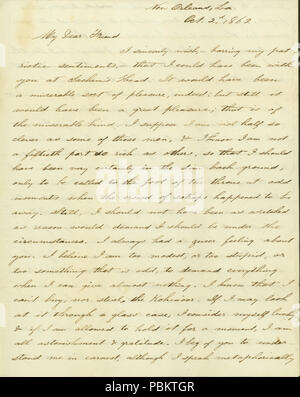 New Orleans, La.
Oct. 2d. 1862
My Dear Friend
I sincerely wish, having my pat
riotic sentiments, that I could have been with
you at Sachem's Head. It would have been
a miserable sort of pleasure, indeed: but still it
would have been a great pleasure, that is of
the miserable kind. I suppose I am not half so
clever as some of those men, & I know I am not
a fiftieth part so rich as others, so that I should
have been very certainly in the dim back ground,
only to be called to the foot of the throne at odd
moments when the crowd of satraps happened to be
away. Still, I should not have been as wretched
as reason would demand I should be under the
circumstances. I always had a queer feeling about
you. I believe I am too modest, or too stupid, or
too something that is odd, to demand everything
when I can give almost nothing. I know that I
can't buy, nor steal, the Kohinoor. If I may look
at it through a glass case, I consider myself lucky
& if I am allowed to hold it for a moment, I am
all astonishment & gratitude. I beg of you to under
stand me in earnest, although I speak metaphorically
alamy
PBKTGR
www.alamy.com